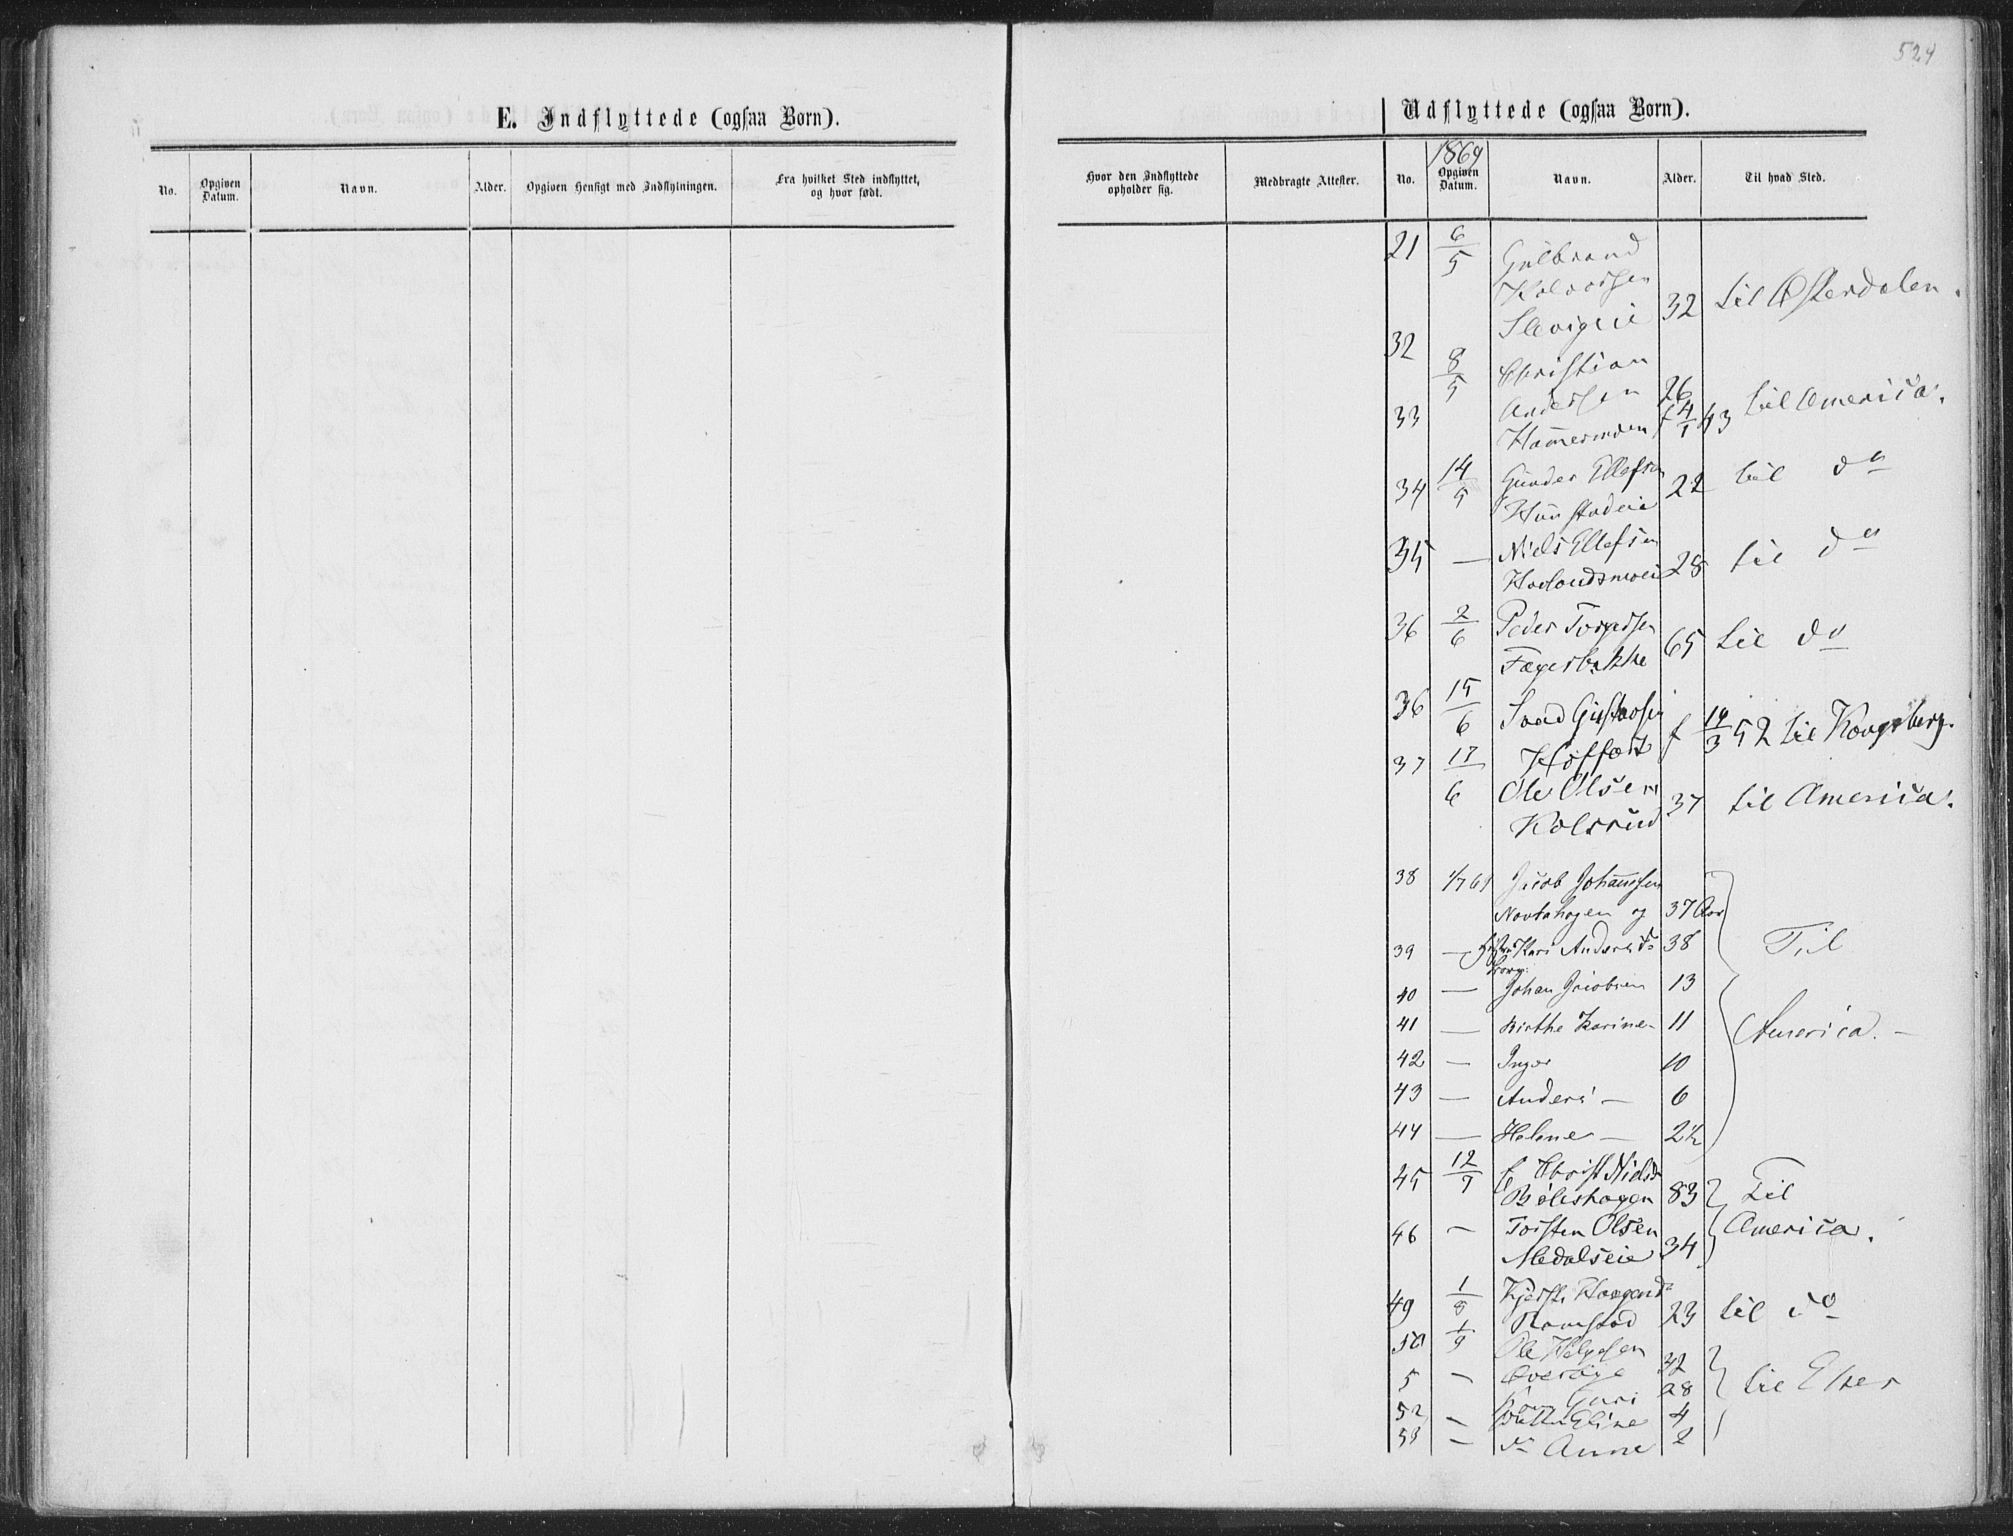 524
E. Indflyttede (ogsaa Børn).
No.
Opgiven Datum.
Navn.
Alder.
Opgiven Hensigt med Indflytningen.
Fra hvilket Sted indflyttet, og hvor født.
Udflyttede (ogsaa Børn).
Hvor den Indflyttede opholder sig.
Medbragte Attester.
No.
1869
Opgiven Datum.
Navn.
Alder.
Til hvad Sted.
21 6/5 Gulbrand
Halvorsen
32 til Østerdalen.
32
8/5 Christian
33 Andersen 26 til America.
f 4/1 43
34 14/5 Gunder Ellefsen 22 til do
35 — Niels Ellefsen
28 til do
36 2/6 Peder
Fagerbakke 65 til do
36 15/6 Gustavsen
f 14/3 52 til Kongsberg.
37 17/6 Ole Olsen
Kolsrud 37 til America.
38 1/7 69 Jacob Johannsen
og 37 Aar
39 — Kari Andersd. 38 Til
40 — Johan Jacobsen 13
41 — Birthe Karine 11 America. —
42 — Inger 10
43 — Anders — 6
44 — Helene — 2½
45 12/7 Nielsd
83 Til
46 — Torsten Olsen America.
34
49 1/8 Kjersti
Ramstad 23 til do
50 1/9 Ole Helgesen
32
5 — Guri 28 til Eker
52 — Eline 4
53 — Anne 2